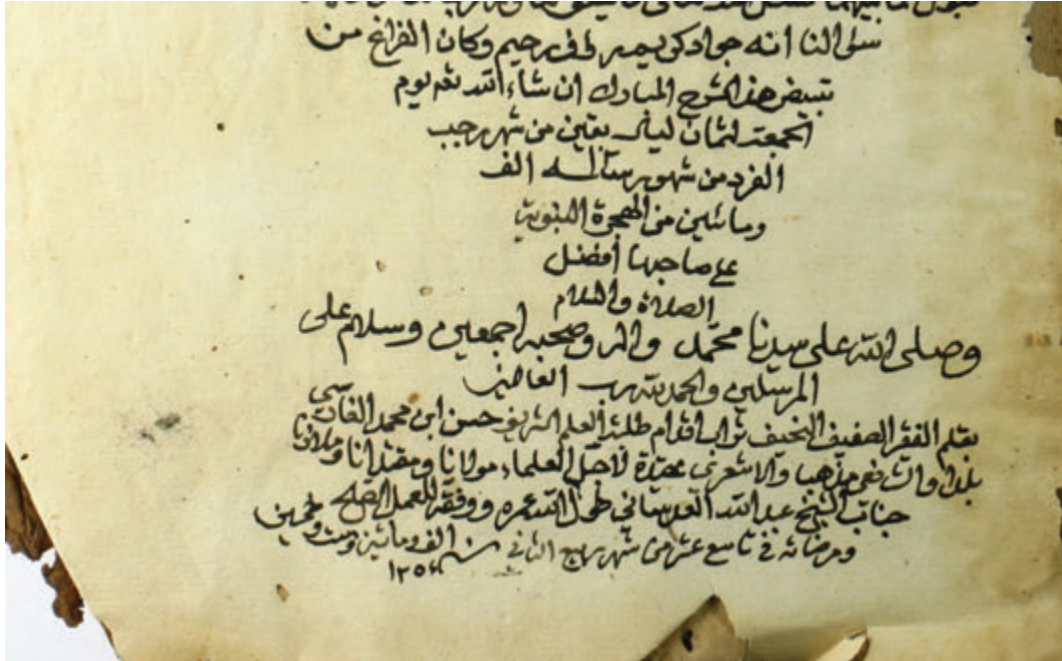 سؤالنا انه جواد كريم رؤف رحيم وكان الفراغ من
تبييض هذا الشرح المبارك ان شاء الله تعه يوم
الجمعة لثمان ليال بقين من شهر رجب
الفرد من شهور سنة الف
ومائتين من الهجرة النبوية
على صاحبها أفضل
الصلاة والسلام
وصلى الله على سيدنا محمد واله وصحبه اجمعين وسلام على
المرسلين والحمد لله رب العالمين
بقلم الفقير الضعيف النحيف تراب اقدام طلبة العلم الشريف حسن ابن محمد
بلدا والشافعي مذهبا والاشعري عقيدة لاجل العلماء مولانا ومقتدانا وملاذنا
جناب الشيخ عبد الله طول الله عمره ووفقه للعمل الصالح
ومرضاته في تاسع عشر من شهر ربيع الثاني سنه الف ومائتين وست وخمسين
١٢٥٦